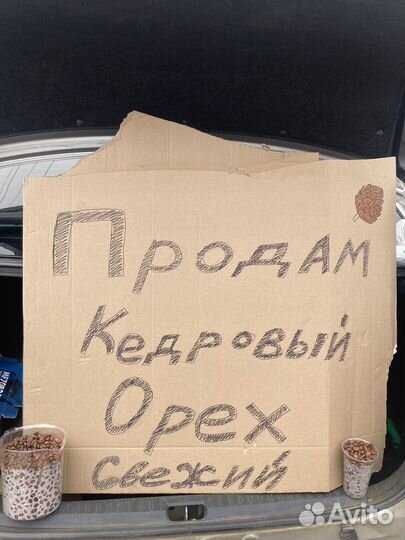 Продам
Кедровый
Орех
Свежий
Avito